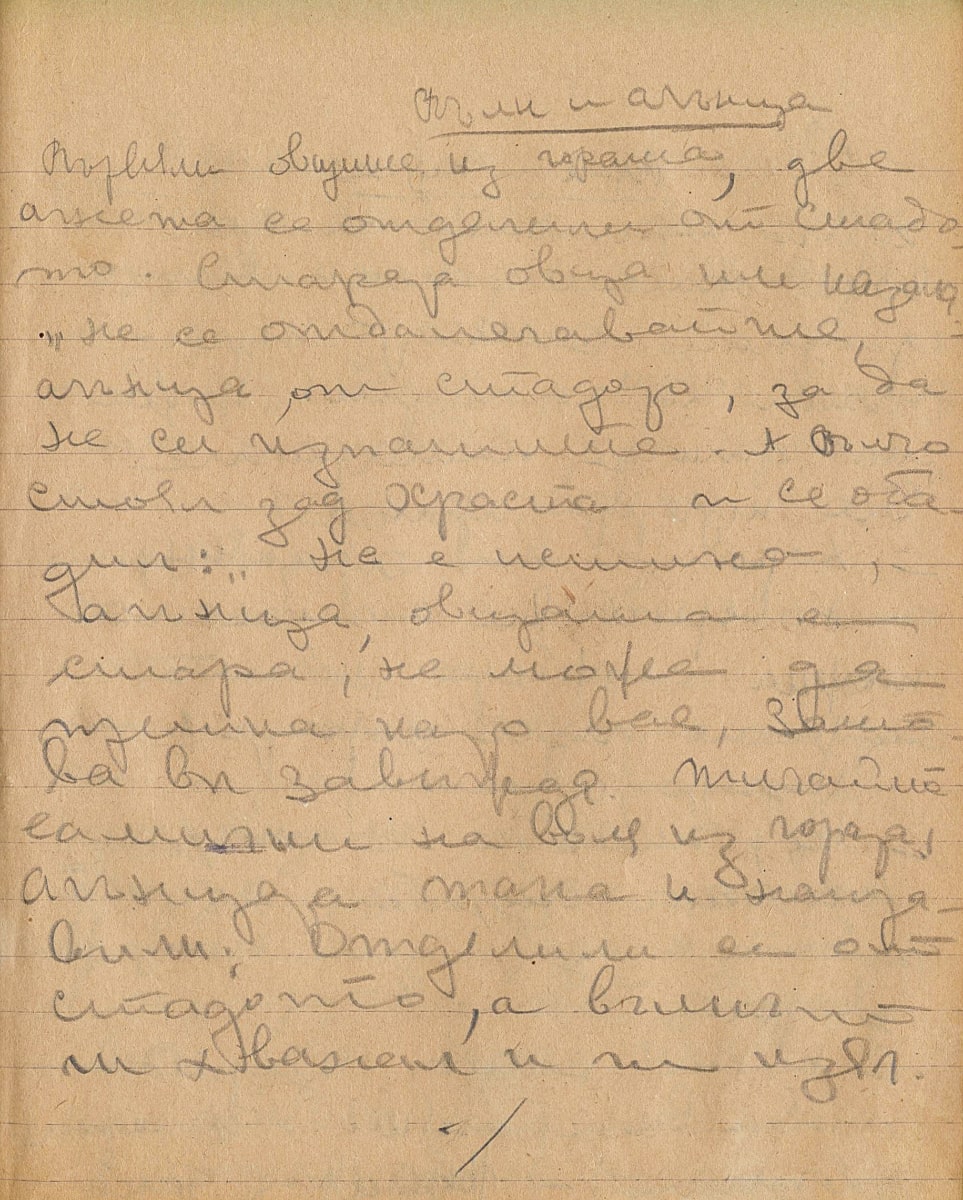 Вълк и агънца
Вървяли овците из гората, две
агнета се отделили от стадо-
то. Старата овца им казала
„не се отдалечавайте,
агънца, от стадото, за да
не си изпатите. А вълчо
стоял зад храста и се оба-
дил: „не е истина,
агънца, овцата е
стара, не може да
тича като вас, зато-
ва ви завижда. Тичайте
самички на воля из гората,
Агънцата така и напра-
вили. Отделили се от
стадото, а вълкът
ги хванал и ги изял.